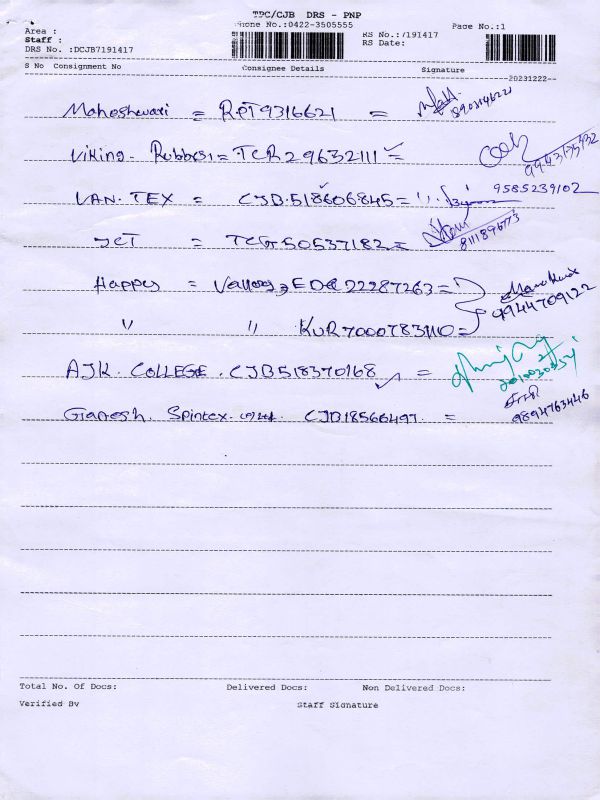 TPC/CJB DRS - PNP
Phone No.:0422-3505555
Page No.:1
Area :
Staff :
RS No.:7191417
DRS No. :DCJB7191417
RS Date:
S No Consignment No Consignee Details Signature
20231222
Maheshwari = RPT9316621 =
Viking. Rubbers = TCR29632111 =
9943175932
VAN. TEX = CJB.518606845 =
9585239102
JCT = TCG50537182 =
8111896773
Happy = Valley, EDC22287263 =
9944709122
" " KUR7000783110 =
AJK. COLLEGE. CJB518370168 =
Ganesh. Spintex. CJB18566497. =
9894763446
Total No. Of Docs: Delivered Docs: Non Delivered Docs:
Verified By Staff Signature